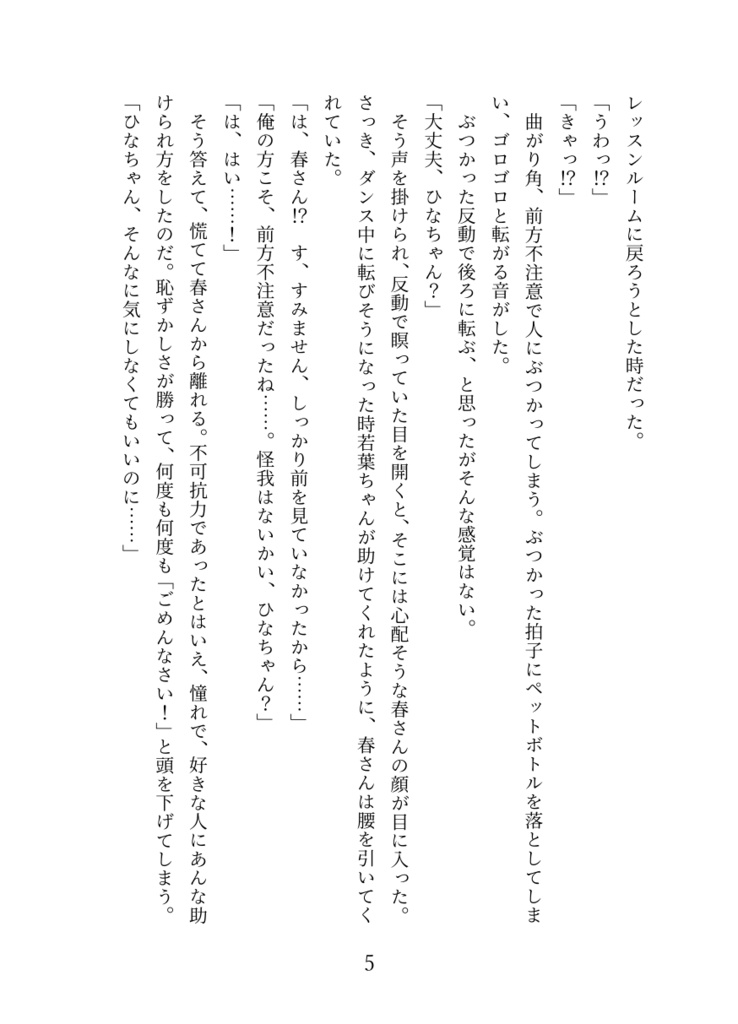 レッスンルームに戻ろうとした時だった。
「うわっ!?」
「きゃっ!?」
　曲がり角、前方不注意で人にぶつかってしまう。ぶつかった拍子にペットボトルを落としてしま
い、ゴロゴロと転がる音がした。
　ぶつかった反動で後ろに転ぶ、と思ったがそんな感覚はない。
「大丈夫、ひなちゃん？」
　そう声を掛けられ、反動で瞑っていた目を開くと、そこには心配そうな春さんの顔が目に入った。
さっき、ダンス中に転びそうになった時若葉ちゃんが助けてくれたように、春さんは腰を引いてく
れていた。
「は、春さん!?　す、すみません、しっかり前を見ていなかったから……」
「俺の方こそ、前方不注意だったね……。怪我はないかい、ひなちゃん？」
「は、はい……！」
　そう答えて、慌てて春さんから離れる。不可抗力であったとはいえ、憧れで、好きな人にあんな助
けられ方をしたのだ。恥ずかしさが勝って、何度も何度も「ごめんなさい！」と頭を下げてしまう。
「ひなちゃん、そんなに気にしなくてもいいのに……」
5